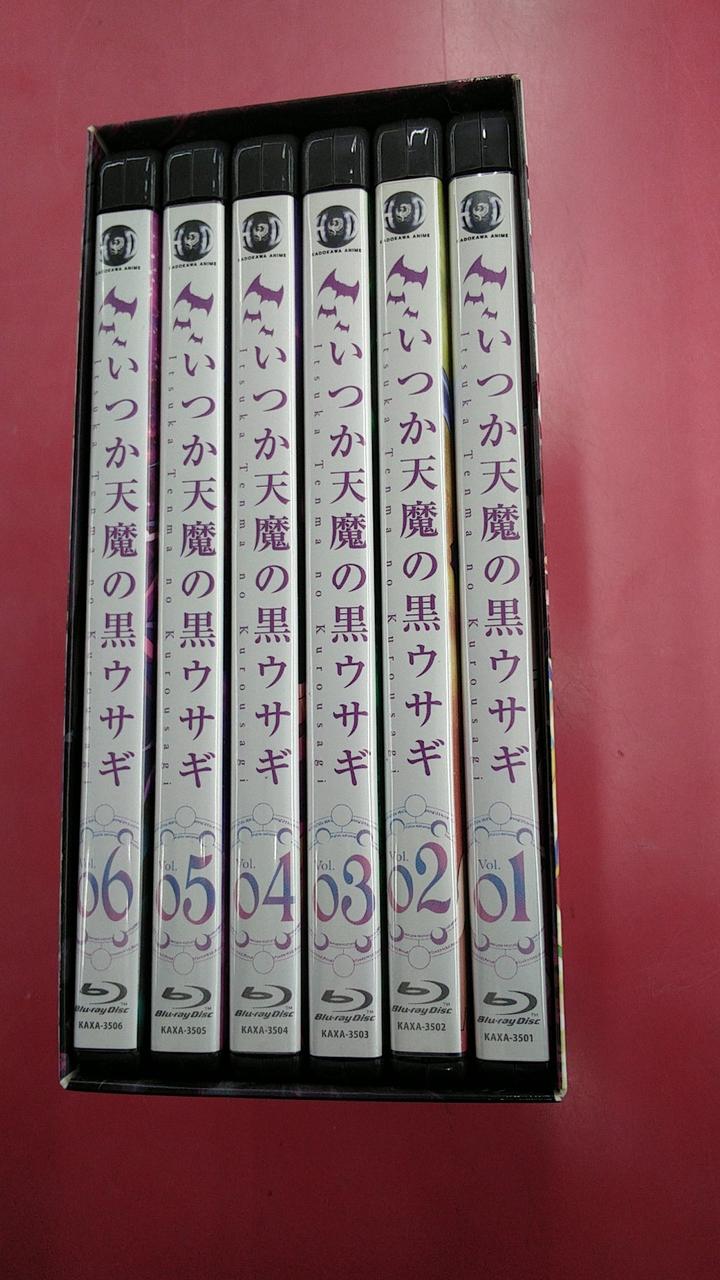 KADOKAWA ANIME
いつか天魔の黒ウサギ
Itsuka Tenma no Kurousagi
Vol.
06
Blu-ray Disc™
KAXA-3506
KADOKAWA ANIME
いつか天魔の黒ウサギ
Itsuka Tenma no Kurousagi
Vol.
05
Blu-ray Disc™
KAXA-3505
KADOKAWA ANIME
いつか天魔の黒ウサギ
Itsuka Tenma no Kurousagi
Vol.
04
Blu-ray Disc™
KAXA-3504
KADOKAWA ANIME
いつか天魔の黒ウサギ
Itsuka Tenma no Kurousagi
Vol.
03
Blu-ray Disc™
KAXA-3503
KADOKAWA ANIME
いつか天魔の黒ウサギ
Itsuka Tenma no Kurousagi
Vol.
02
Blu-ray Disc™
KAXA-3502
KADOKAWA ANIME
いつか天魔の黒ウサギ
Itsuka Tenma no Kurousagi
Vol.
01
Blu-ray Disc™
KAXA-3501